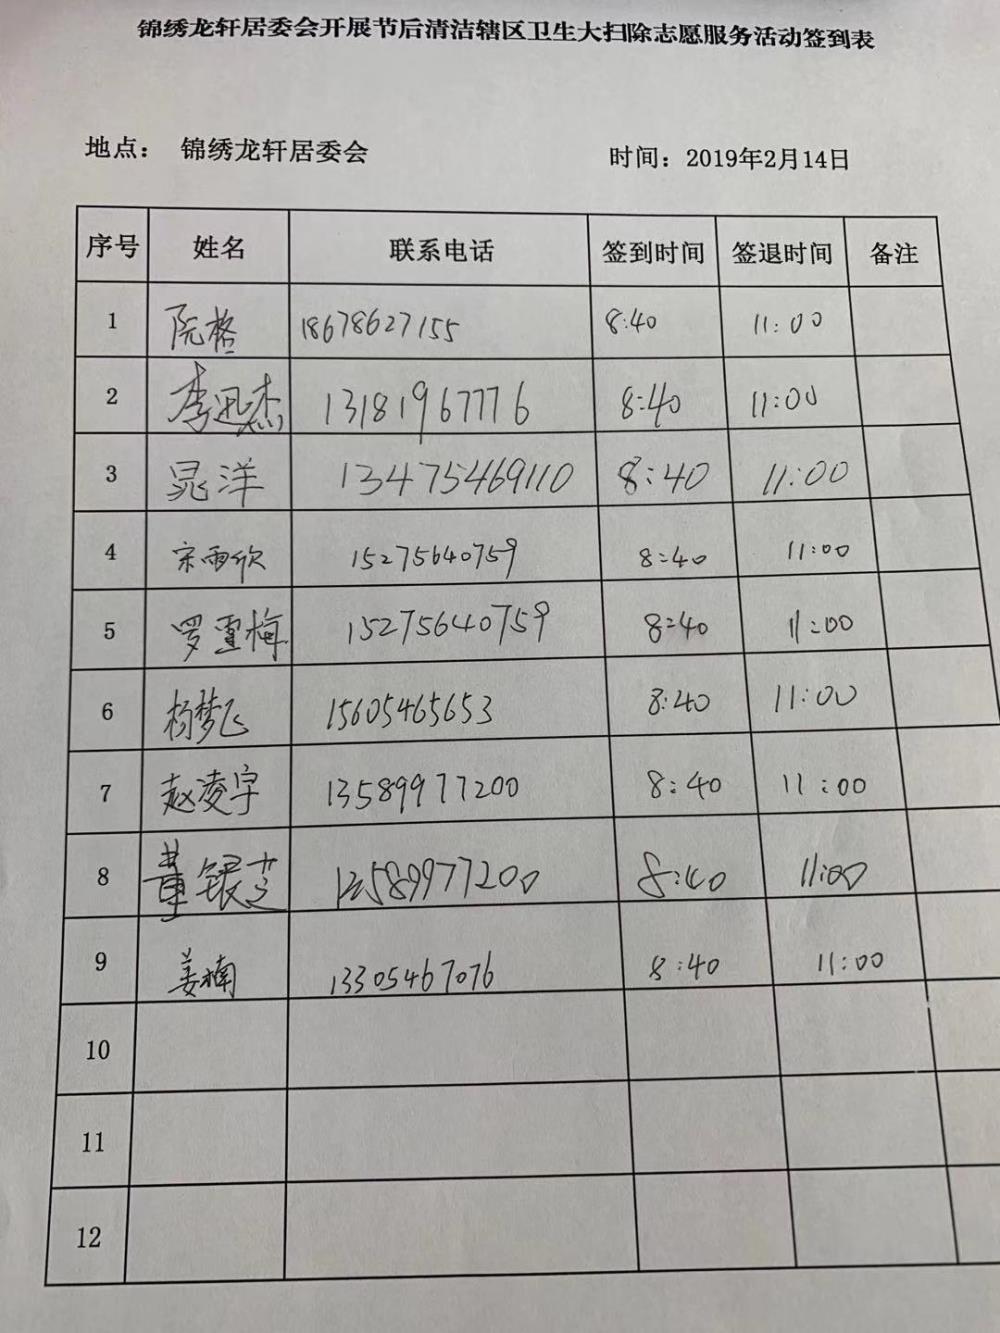 锦绣龙轩居委会开展节后清洁辖区卫生大扫除志愿服务活动签到表
地点： 锦绣龙轩居委会 时间：2019年2月14日
序号 姓名 联系电话 签到时间 签退时间 备注
1 阮格 18678627155 8:40 11:00
2 李迅杰 13181967776 8:40 11:00
3 晁洋 13475469110 8:40 11:00
4 宋雨欣 15275640759 8:40 11:00
5 罗雪梅 15275640759 8:40 11:00
6 杨梦飞 15605465653 8:40 11:00
7 赵凌宇 13589977200 8:40 11:00
8 董银芝 13589977200 8:40 11:00
9 姜楠 13305467076 8:40 11:00
10
11
12